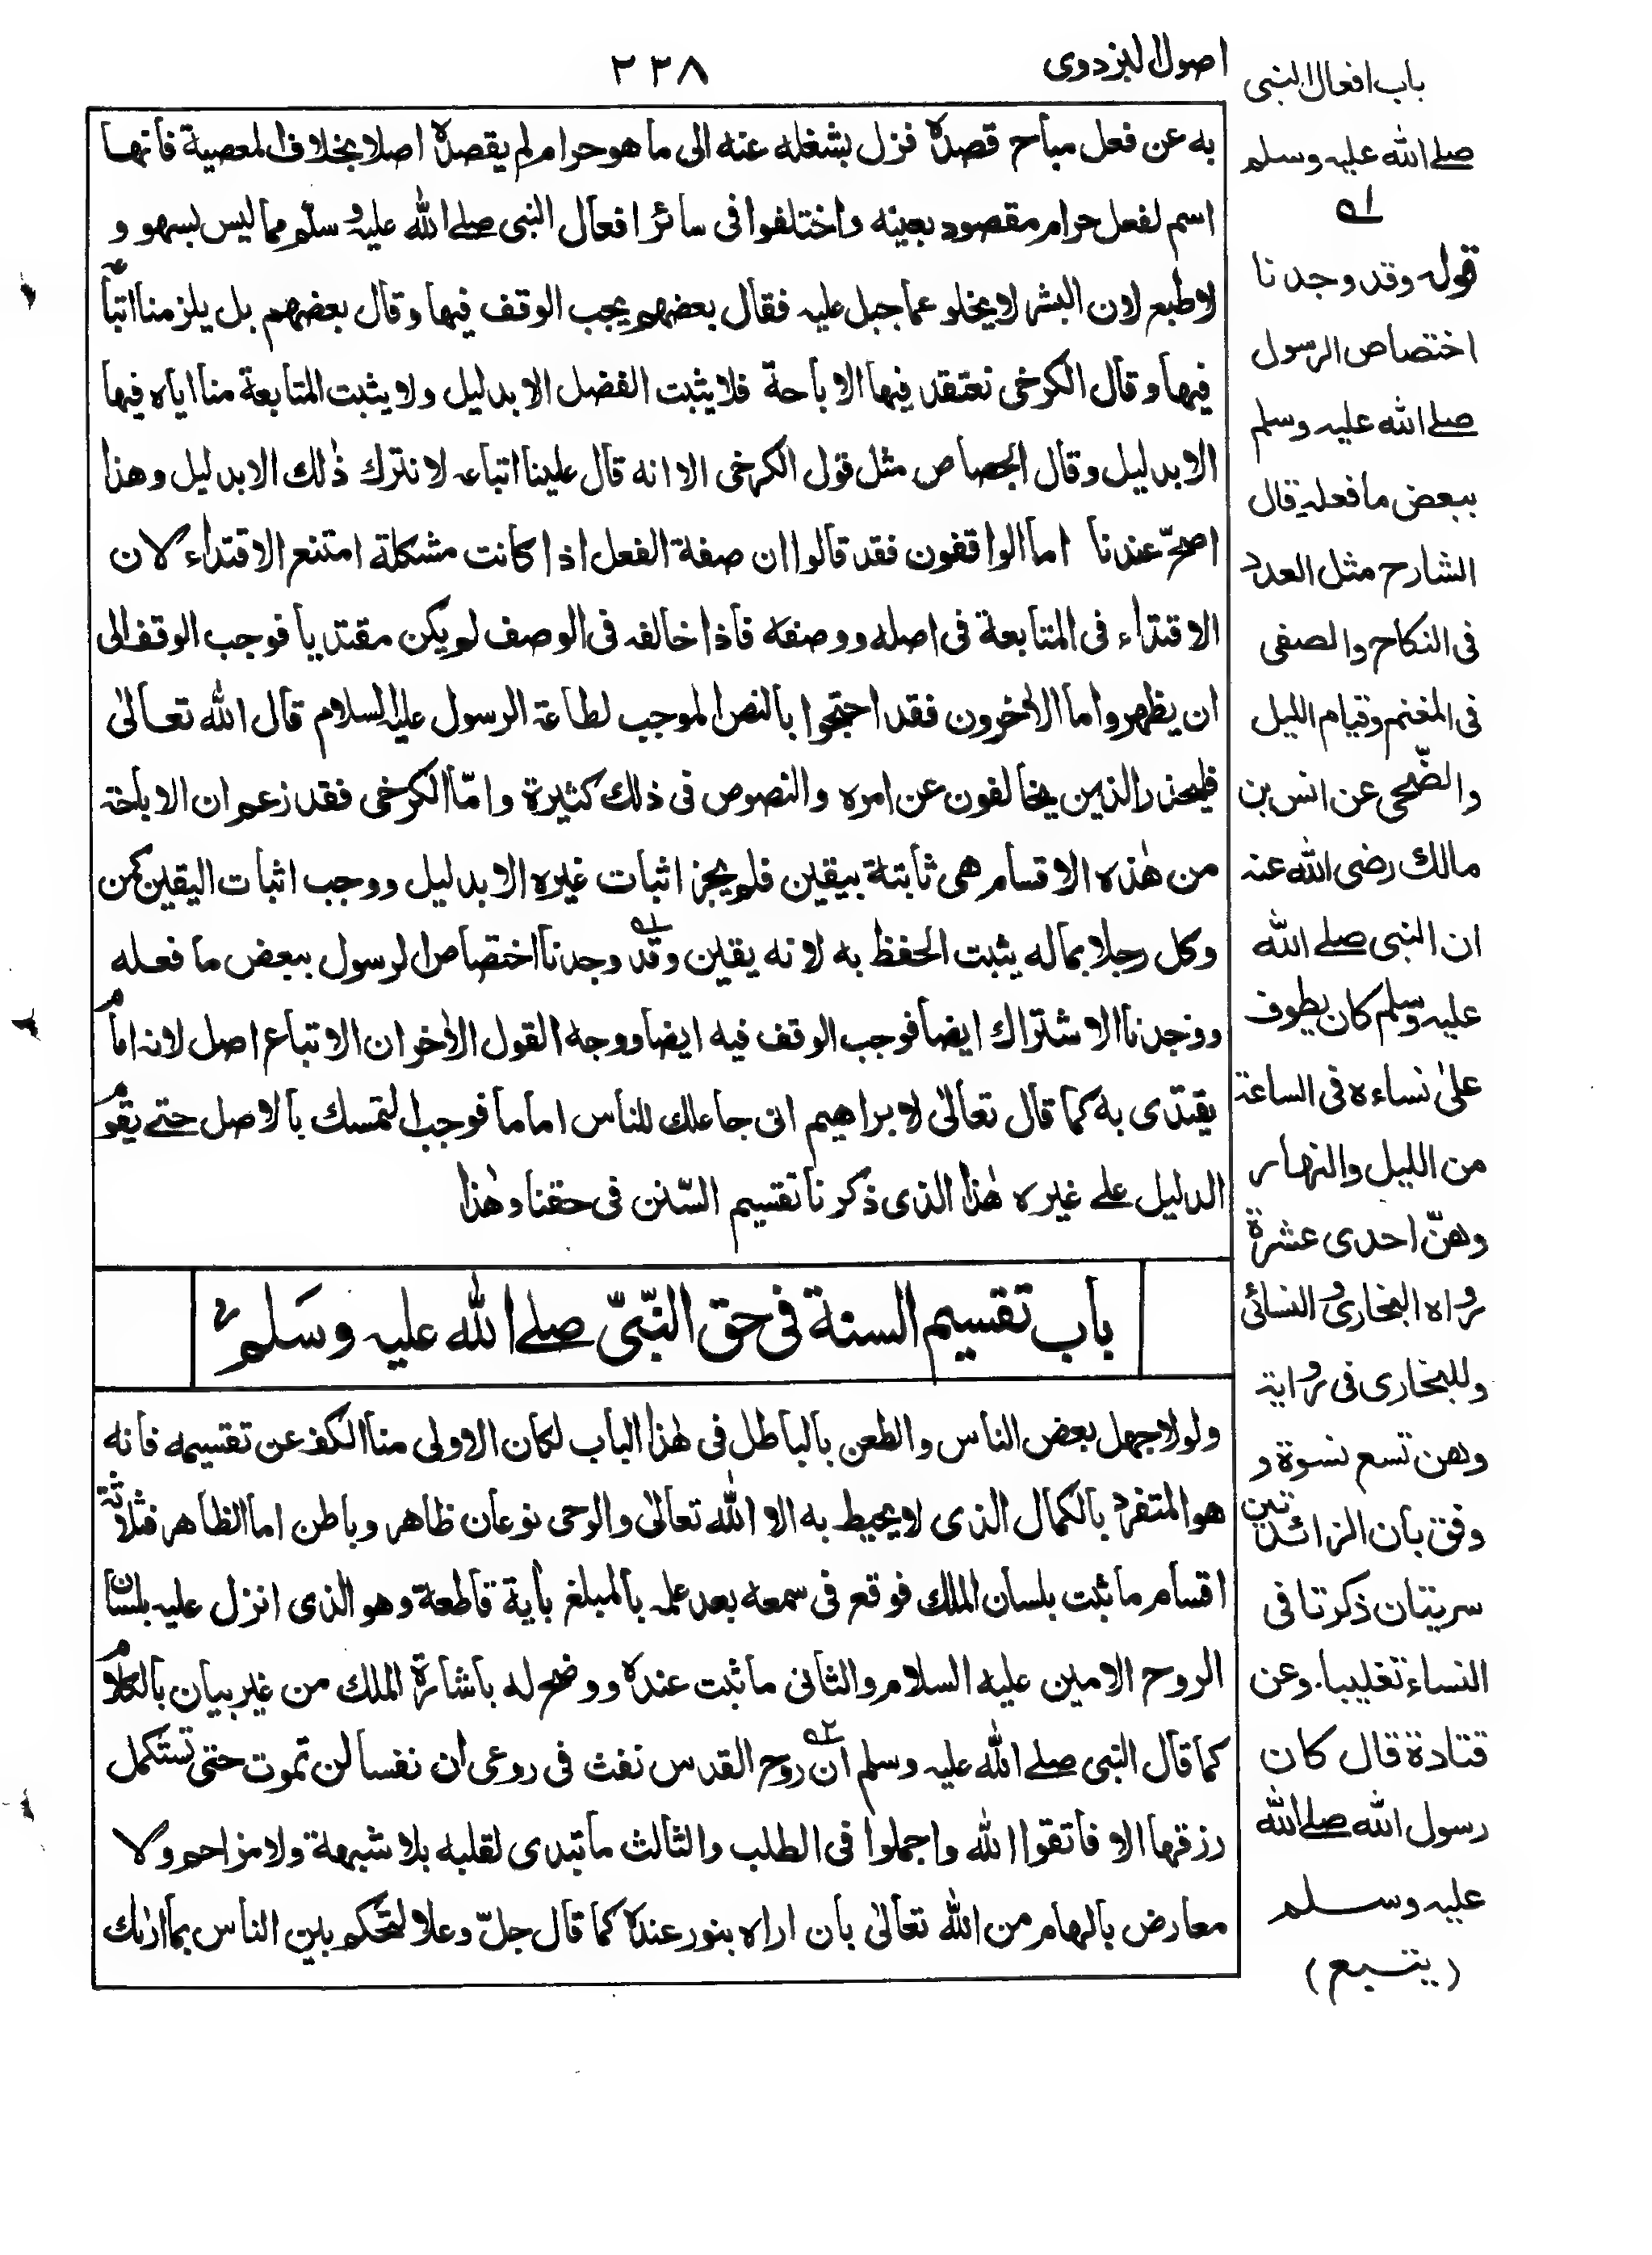 اصول البزدوی
٢٣٨
به عن فعل مباح قصده فزل بشغله عنه الى ما هو حرام لم يقصده اصلا بخلاف المعصية فانها
اسم لفعل حرام مقصود بعينه واختلفوا فى سائر افعال النبى صلے الله عليه وسلّم مما ليس بسهو و
لا طبع لان البشر لا يخلو عما جبل عليه فقال بعضهم يجب الوقف فيها وقال بعضهم بل يلزمنا اتباعه
فيها وقال الكرخى نعتقد فيها الاباحة فلا يثبت الفضل الا بدليل ولا يثبت المتابعة منا اياه فيها
الا بدليل وقال الجصاص مثل قول الكرخى الا انه قال علينا اتباعه لا نترك ذٰلك الا بدليل وهذا
اصحّ عندنا اما الواقفون فقد قالوا ان صفة الفعل اذا كانت مشكلة امتنع الاقتداء لان
الاقتداء فى المتابعة فى اصله ووصفه فاذا خالفه فى الوصف لم يكن مقتديا فوجب الوقف الى
ان يظهر واما الاٰخرون فقد احتجوا بالنص الموجب لطاعة الرسول عليه السلام قال الله تعالىٰ
فليحذر الذين يخالفون عن امره والنصوص فى ذلك كثيرة وامّا الكرخى فقد زعم ان الاباحة
من هٰذه الاقسام هى ثابتة بيقين فلم يجز اثبات غيره الا بدليل ووجب اثبات اليقين كمن
وكل رجلا بماله يثبت الحفظ به لانه يقين وقد ١ه وجدنا اختصاص الرسول ببعض ما فعله
ووجدنا الاشتراك ايضا فوجب الوقف فيه ايضا ووجه القول الاٰخر ان الاتباع اصل لانه امام
يقتدى به كما قال تعالىٰ لابراهيم انى جاعلك للناس اماما فوجب التمسك بالاصل حتے يقوم
الدليل علے غيره هٰذا الذى ذكرنا تقسيم السّنن فى حقنا وهٰذا
باب تقسيم السنة فى حق النّبىّ صلے الله عليه وسَلم
ولولا جهل بعض الناس والطعن بالباطل فى هٰذا الباب لكان الاولى منا الكف عن تقسيمه فانه
هو المتفرد بالكمال الذى لا يحيط به الا الله تعالىٰ والوحى نوعان ظاهر وباطن اما الظاهر فثلاثة
اقسام ما ثبت بلسان الملك فوقع فى سمعه بعد علمه بالمبلغ بأية قاطعة وهو الذى انزل عليه بلسان
الروح الامين عليه السلام والثانى ما ثبت عنده ووضح له باشارة الملك من غير بيان بالكلام
كما قال النبى صلے الله عليه وسلم ان ٢ه روح القدس نفث فى روعى ان نفسا لن تموت حتى تستكمل
رزقها الا فاتقوا الله واجملوا فى الطلب والثالث ما تبدى لقلبه بلا شبهة ولا مزاحم ولا
معارض بالهام من الله تعالىٰ بان اراه بنور عنده كما قال جلّ وعلا لتحكم بين الناس بما ارٰىك
باب افعال النبى
صلے الله عليه وسلم
١ه
قوله وقد وجدنا
اختصاص الرسول
صلے الله عليه وسلم
ببعض ما فعله قال
الشارح مثل العدد
فى النكاح والصفى
فى المغنم وقيام الليل
والضّحى عن انس بن
مالك رضى الله عنه
ان النبى صلے الله
عليه وسلم كان يطوف
علىٰ نساءه فى الساعة
من الليل والنهار
وهنّ احدى عشرة
رواه البخارى والنسائى
وللبخارى فى رواية
وهن تسع نسوة و
وفق بان الزائدتين
سريتان ذكرتا فى
النساء تغليبا. وعن
قتادة قال كان
رسول الله صلے الله
عليه وسلم
(يتبع)